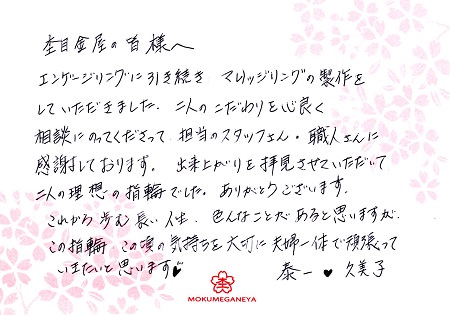 杢目金屋の皆様へ
エンゲージリングに引き続き マリッジリングの製作を
していただきました。二人のこだわりを心良く
相談にのってくださって 担当のスタッフさん・職人さんに
感謝しております。出来上がりを拝見させていただいて
二人の理想の指輪でした。ありがとうございます。
これから歩む長い人生、色んなことがあると思いますが、
この指輪、この頃の気持ちを大切に夫婦一体で頑張って
いきたいと思います♥
泰一 ♥ 久美子
MOKUMEGANEYA